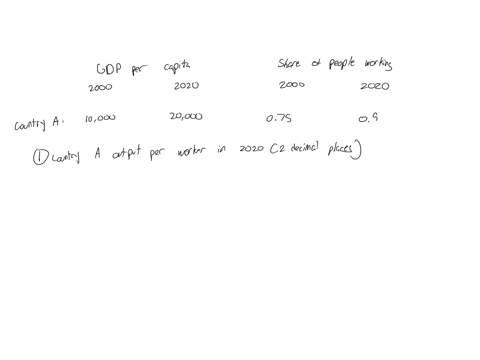 GDP per capita Share of people working
2000 2020 2000 2020
Country A: 10,000 20,000 0.75 0.9
① Country A output per worker in 2020 (2 decimal places)